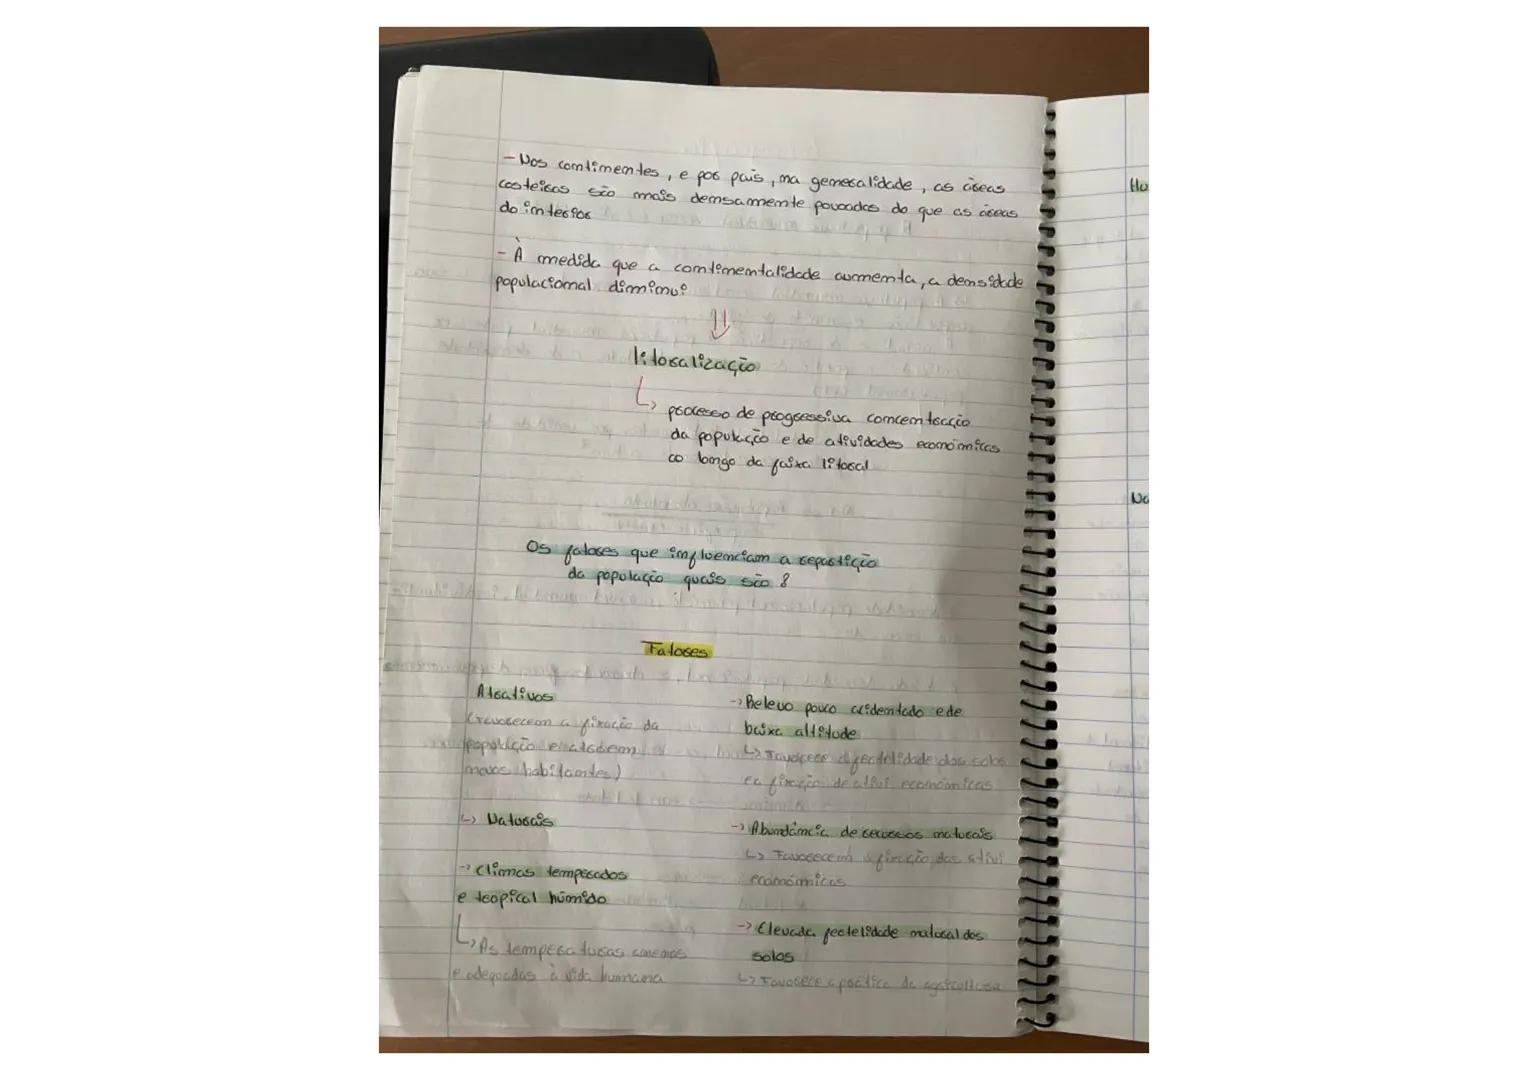 - Nos continentes, e por país, na generalidade, as áreas
costeiras são mais densamente povoadas do que as áreas
do interior
- À medida que a continentalidade aumenta, a densidade
populacional diminui
litoralização
processo de progressiva concentração
da população e de atividades económicas
ao longo da faixa litoral
Os fatores que influenciam a repartição
da população quais são?
Fatores
Atrativos
(Favorecem a fixação da
população e atraem
novos habitantes)
↳ Naturais
→ Climas temperados
e tropical húmido
↳ As temperaturas amenas
e adequadas à vida humana
→ Relevo pouco acidentado e de
baixa altitude
↳ Favorece a fertelidade dos solos
e a fixação de ativi. económicas
→ Abundância de recursos naturais
↳ Favorecem a fixação das ativi
económicas
→ Elevada fertelidade natural dos
solos
↳ Favorece a prática da agricultura
Hu
Na